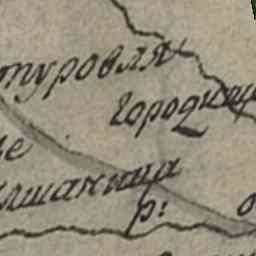 туровля
городищ
е
лшаница
р:
о